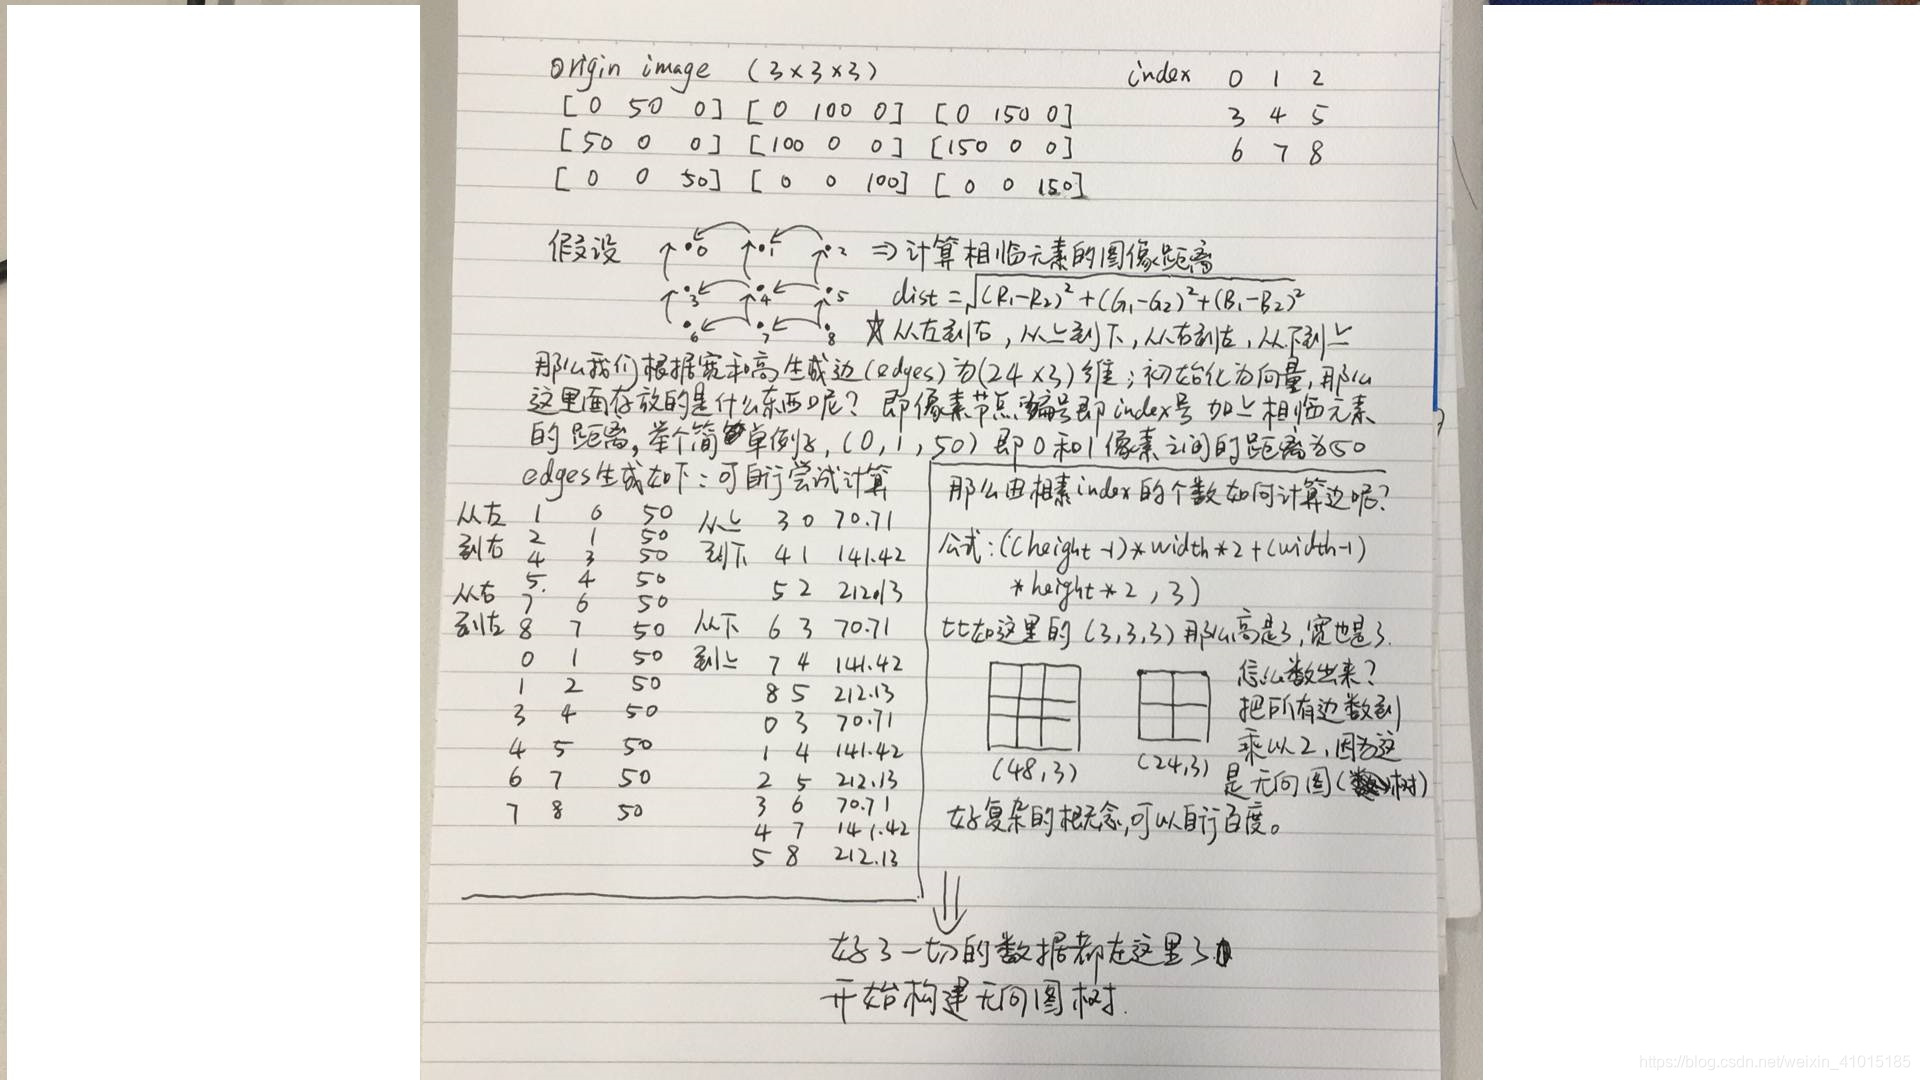 origin image (3×3×3)
[0 50 0] [0 100 0] [0 150 0]
[50 0 0] [100 0 0] [150 0 0]
[0 0 50] [0 0 100] [0 0 150]
index 0 1 2
3 4 5
6 7 8
假设
0 1 2
3 4 5
6 7 8
⇒计算相临元素的图像距离
dist=√(R1-R2)²+(G1-G2)²+(B1-B2)²
☆从左到右,从上到下,从右到左,从下到上
那么我们根据宽和高生成边(edges)为(24×3)维;初始化为向量,那么
这里面存放的是什么东西呢?即像素节点编号即index号加上相临元素
的距离,举个简单例子,(0,1,50)即0和1像素之间的距离为50
edges生成如下:可自行尝试计算
从左到右
从右到左
1 0 50
2 1 50
4 3 50
5 4 50
7 6 50
8 7 50
0 1 50
1 2 50
3 4 50
4 5 50
6 7 50
7 8 50
从上到下
从下到上
3 0 70.71
4 1 141.42
5 2 212.13
6 3 70.71
7 4 141.42
8 5 212.13
0 3 70.71
1 4 141.42
2 5 212.13
3 6 70.71
4 7 141.42
5 8 212.13
那么由相素index的个数如何计算边呢?
公式:((height-1)*width*2+(width-1)
*height*2,3)
比如这里的(3,3,3)那么高是3,宽也是3.
(48,3)
(24,3)
怎么数出来?
把所有边数到
乘以2,因为这
是无向图(树)
好复杂的概念,可以自行百度。
好了一切的数据都在这里了
开始构建无向图树.
https://blog.csdn.net/weixin_41015185